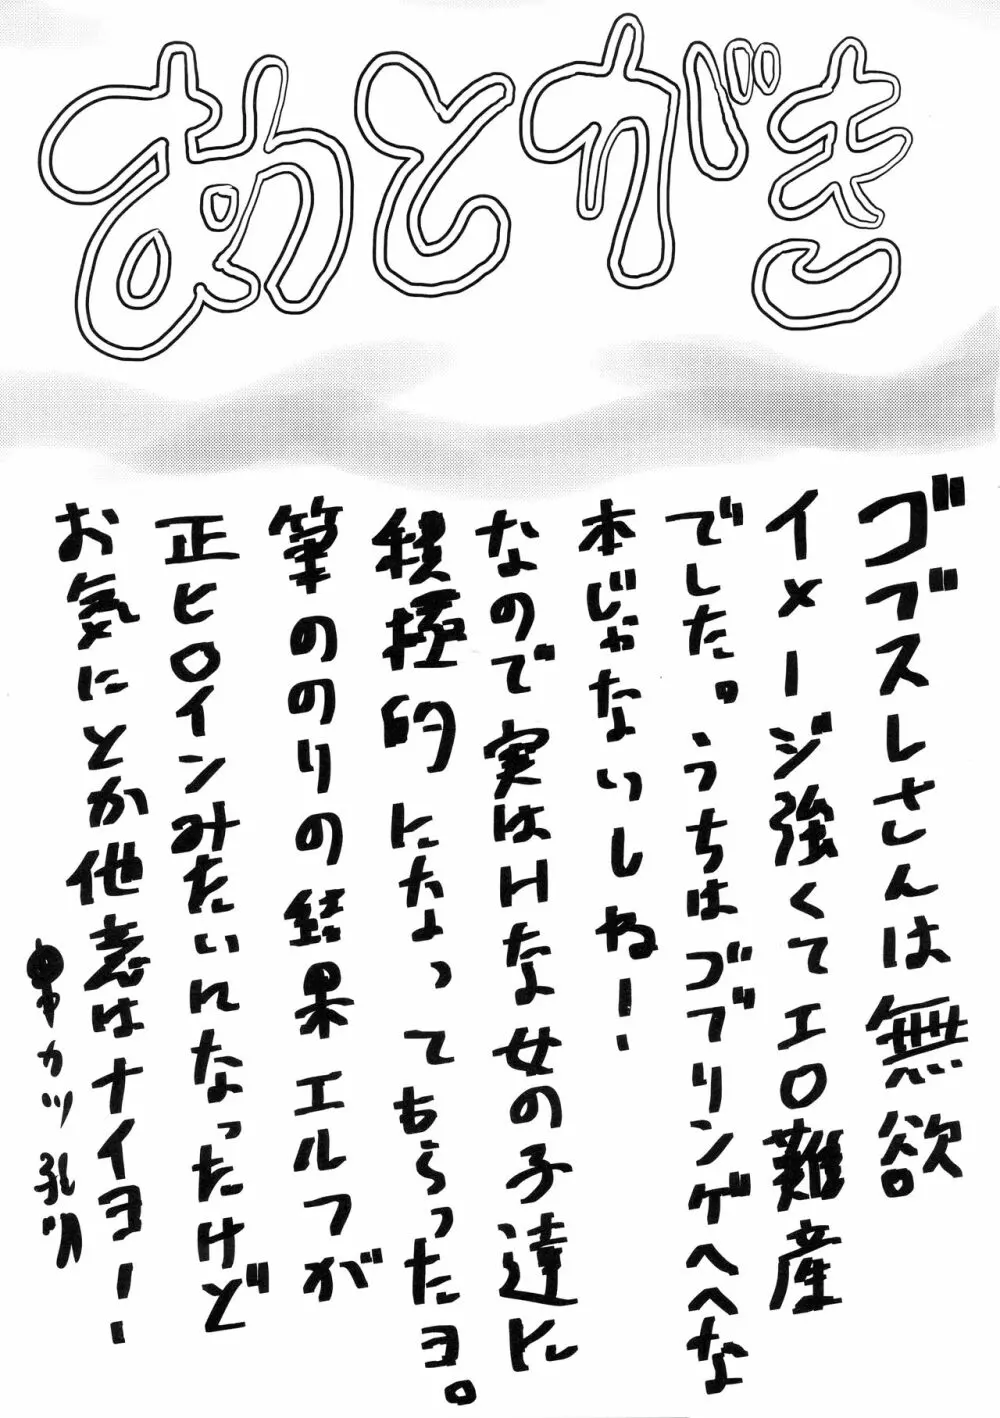 あとがき
ゴブスレさんは無欲
イメージ強くてエロ難産
でした。うちはゴブリンゲヘヘな
本じゃないしねー!
なので実はHな女の子達に
積極的になってもらったヨ。
筆ののりの結果エルフが
正ヒロインみたいになったけど
お気にとか他意はナイヨー!